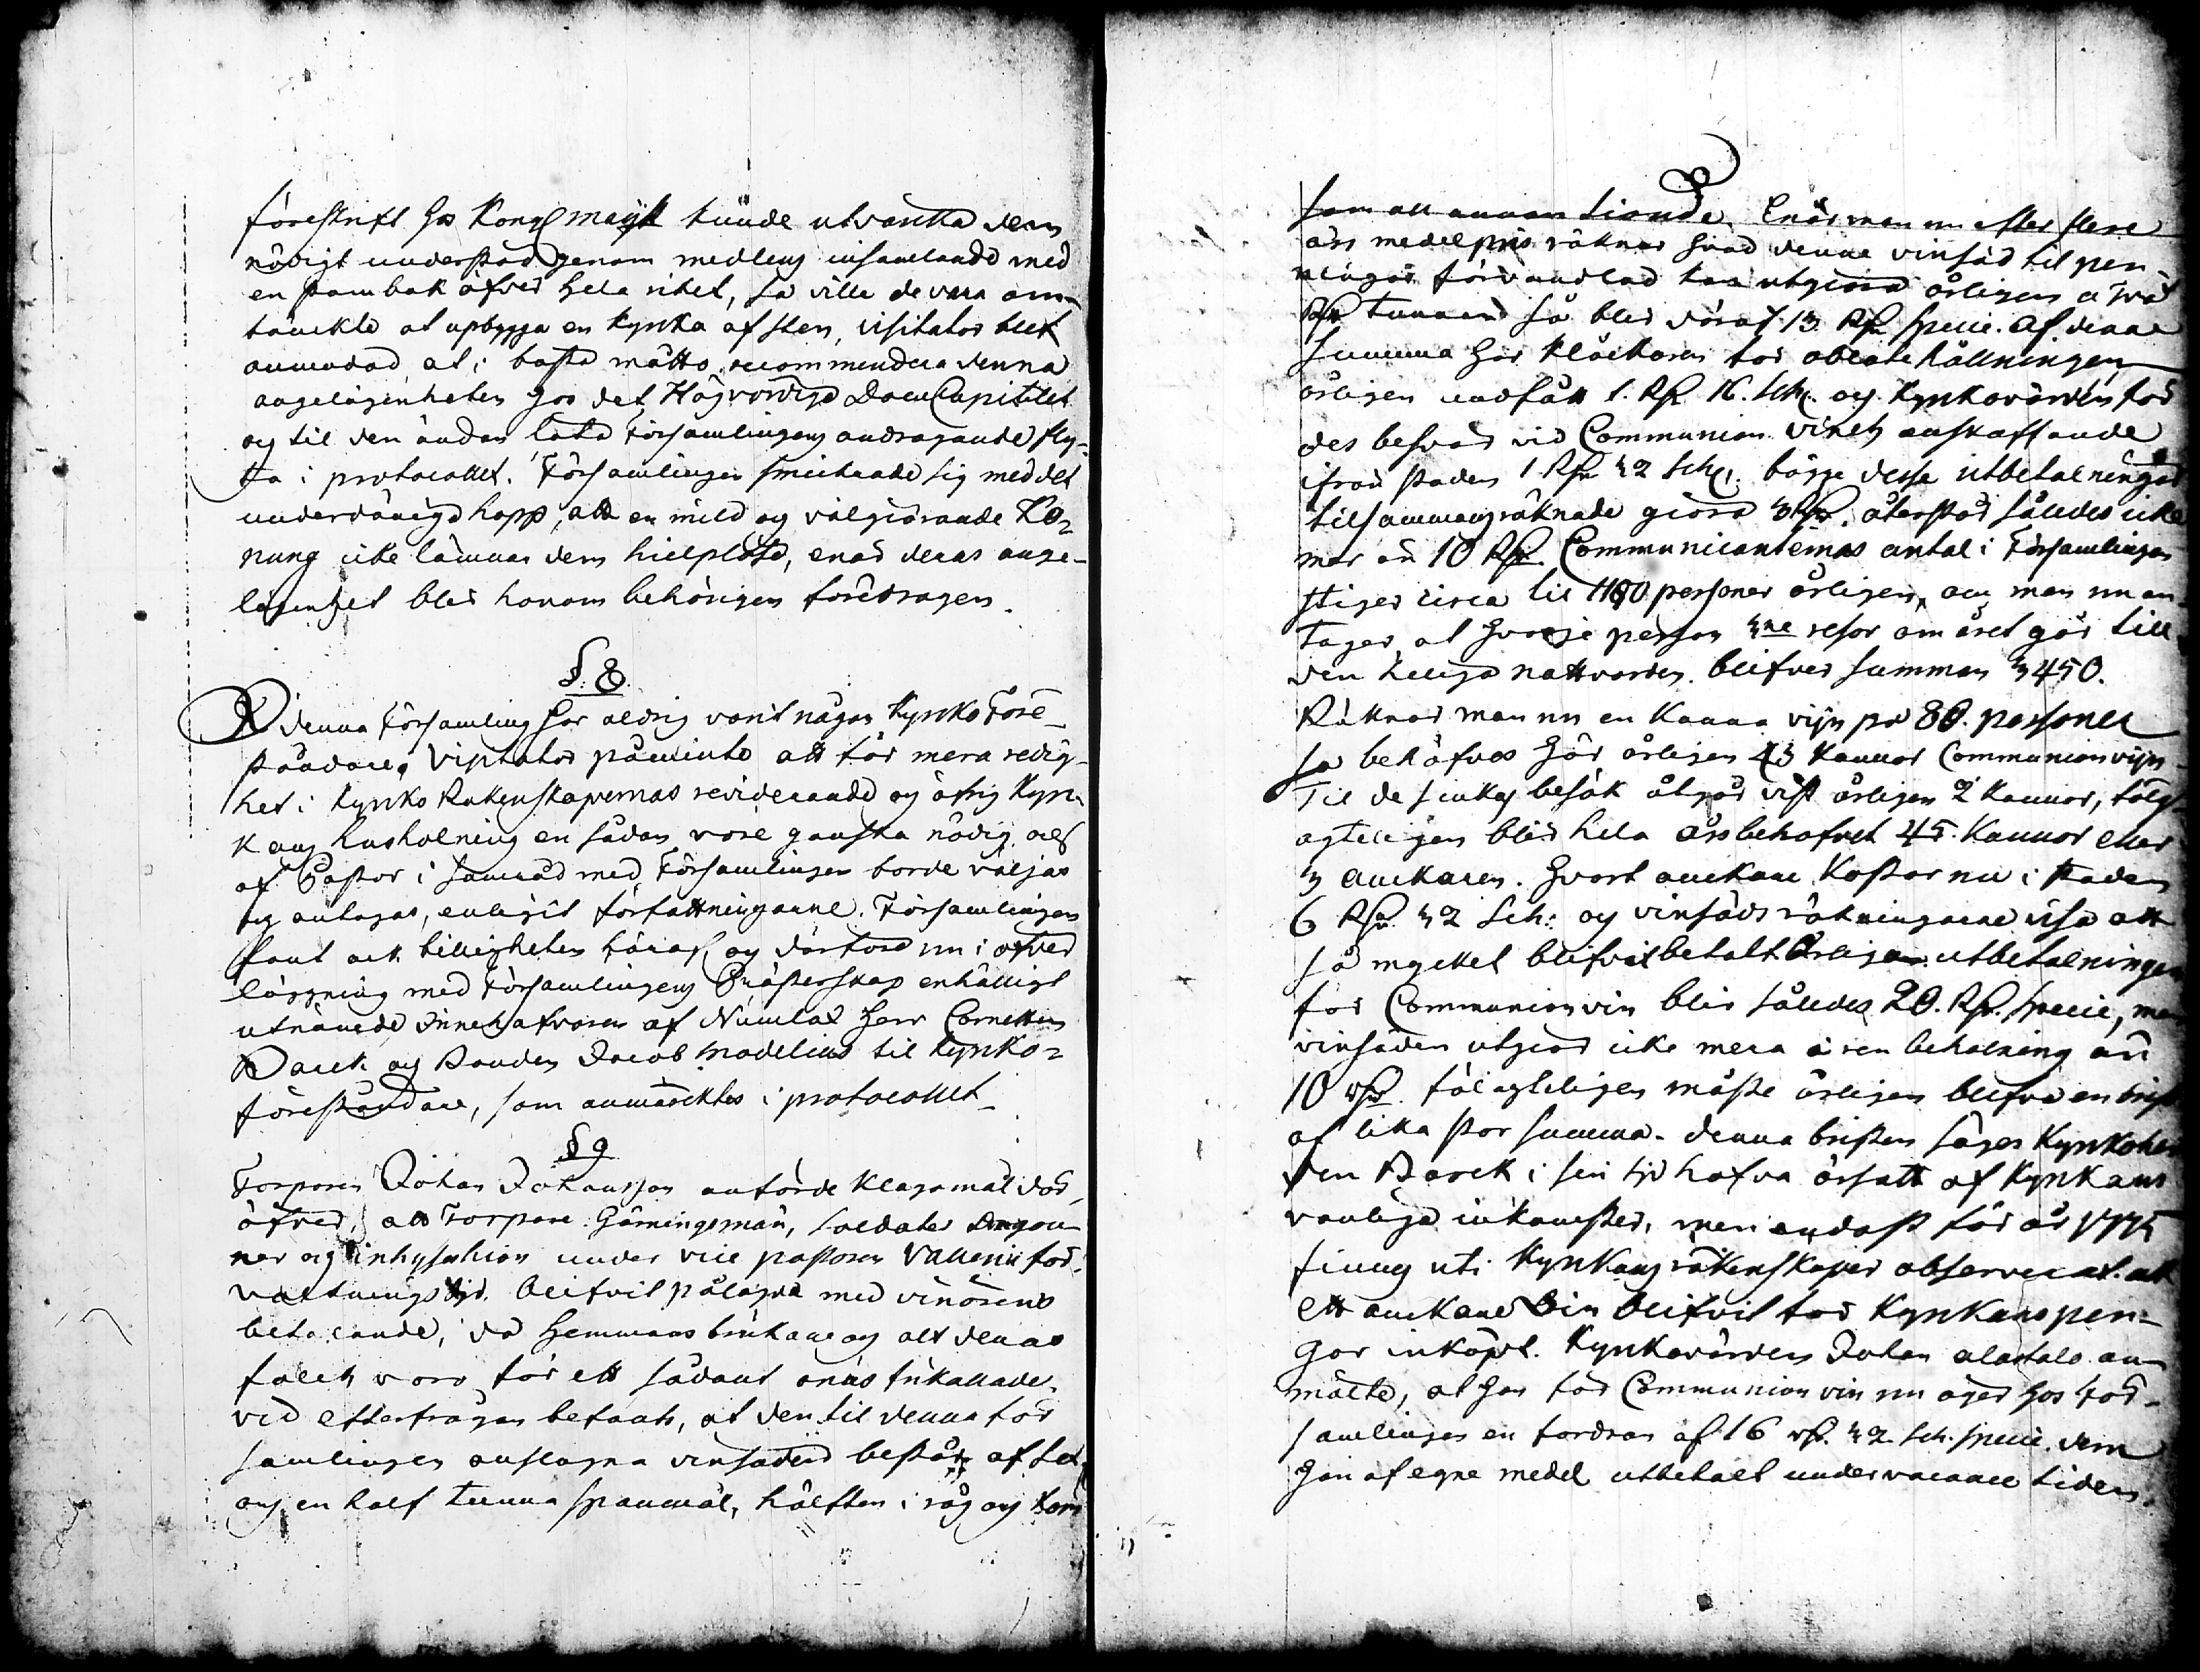 föreskrift hos Kongl mayst kunde utvärcka dem
nödigt understöd genom medlens insamlande med
en stambok öfver hela riket, så ville de vara om-
tänckte at upbygga en kyrka af sten, visitator blef
anmodad, at i bästa måtto recommendera denna
angelägenheten hos det Högvördiga DomCapitlet
og til den ändan låta Församlingens andragande fly-
ta i protocollet. Församlingen smickrade sig med det
underdåniga hopp, att en mild og välgiörande Ko-
nung icke lämnar dem hielplösa, enär deras ange-
lägenhet blir honom behörigen föredragen.
§. 8.
I denna Församling har aldrig varit någon Kyrko Före-
ståndare. Visitator påminte att för mera redig-
het i Kyrko Räkenskapernas reviderande og öfrig Kyr-
kans hushålning en sådan vore ganska nödig, och
af Pastor i samråd med Församlingen borde väljas
og antagas, enligit författningarne. Församlingen
fant ock billigheten häraf, og därföre nu i öfver
läggning med Församlingens Prästerskap enhälligt
utnämde Innehafvaren af Numlax Herr Cornetten
Barck og Bonden Jacob Modelius til Kyrko-
föreståndare, som anmärcktes i protocollet.
§ 9
Torparen Johan Johansson anförde klagomål där-
öfver, att Torpare Gärningsmän, soldater Dragou-
ner og inhyseshion under vice pastoren Vallenii för-
valtningstjd blifvit pålagde med vinörens
betalande, då hemmans brukare og alt deras
folck voro för ett sådant onus frikallade.
vid efterfrågan befants, at den til denna för
samlingen anslagna vinsäden består af sex
og en half tunna spannmål, hälften i råg og korn
som all annan tionde. Enär man nu efter flere
års medelpris räknar hvad denne vinsäd til pen-
ningar förvandlad kan utgiöra årligen a Två
Rdr Tunnan så blir däraf 13 Rdr specie. Af denne
summa har klåckaren för oblate hållningen
årligen undfått 1. Rdr 16. sch. og kyrkovärden för
des besvär vid Communion vinets anskaffande
ifrån staden 1 Rdr 32 sch. bägge desse utbetalningar
tilsammansräknade giöra 3 Rdr. återstår således icke
mer än 10 Rdr. Communicanternas antal i Församlingen
stiger circa til 1180 personer årligen, om man nu an-
tager at hvarje person 3ne resor om året går till
den heliga nattvarden. blifver summan 3450.
Räknar man nu en kanna vijn på 80. personer
så behöfves här årligen 43 kannor Communionvijn
Til de siukas besök åtgår vist årligen 2 kannor, följ-
agteligen blir hela årsbehofvet 45. kannor eller
3 anckaren. Hvart anckare kostar nu i staden
6 Rdr. 32 sch: og vinsäds räkningarne visa att
så mycket blifvit betalt. Årligen utbetalningen
för Communionvin blir således 20. Rdr. specie, men
vinsäden utgiör icke mera i ren behålning än
10 rdr. följagteligen måste årligen blifva en brist
af lika stor summa. denna bristen säges Kyrkoher
den Barck i sin tjd hafva ersatt af Kyrkans
vanliga inkomster, men endast för år 1775
finns uti Kyrkans räkenskaper observerat. att
ett anckare Vin blifvit för Kyrkans pen-
gar inköpt. Kyrkovärden Johan alastalo an-
mälte, at han för Communion vin nu äger hos för-
samlingen en fordran af 16 rdr. 32 sch. specie. dem
han af egne medel utbetalt under vacance tiden.